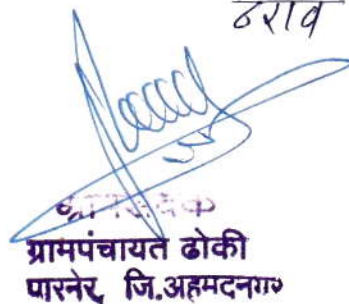 ठराव
ग्रामसेवक
ग्रामपंचायत ढोकी
पारनेर, जि.अहमदनगर